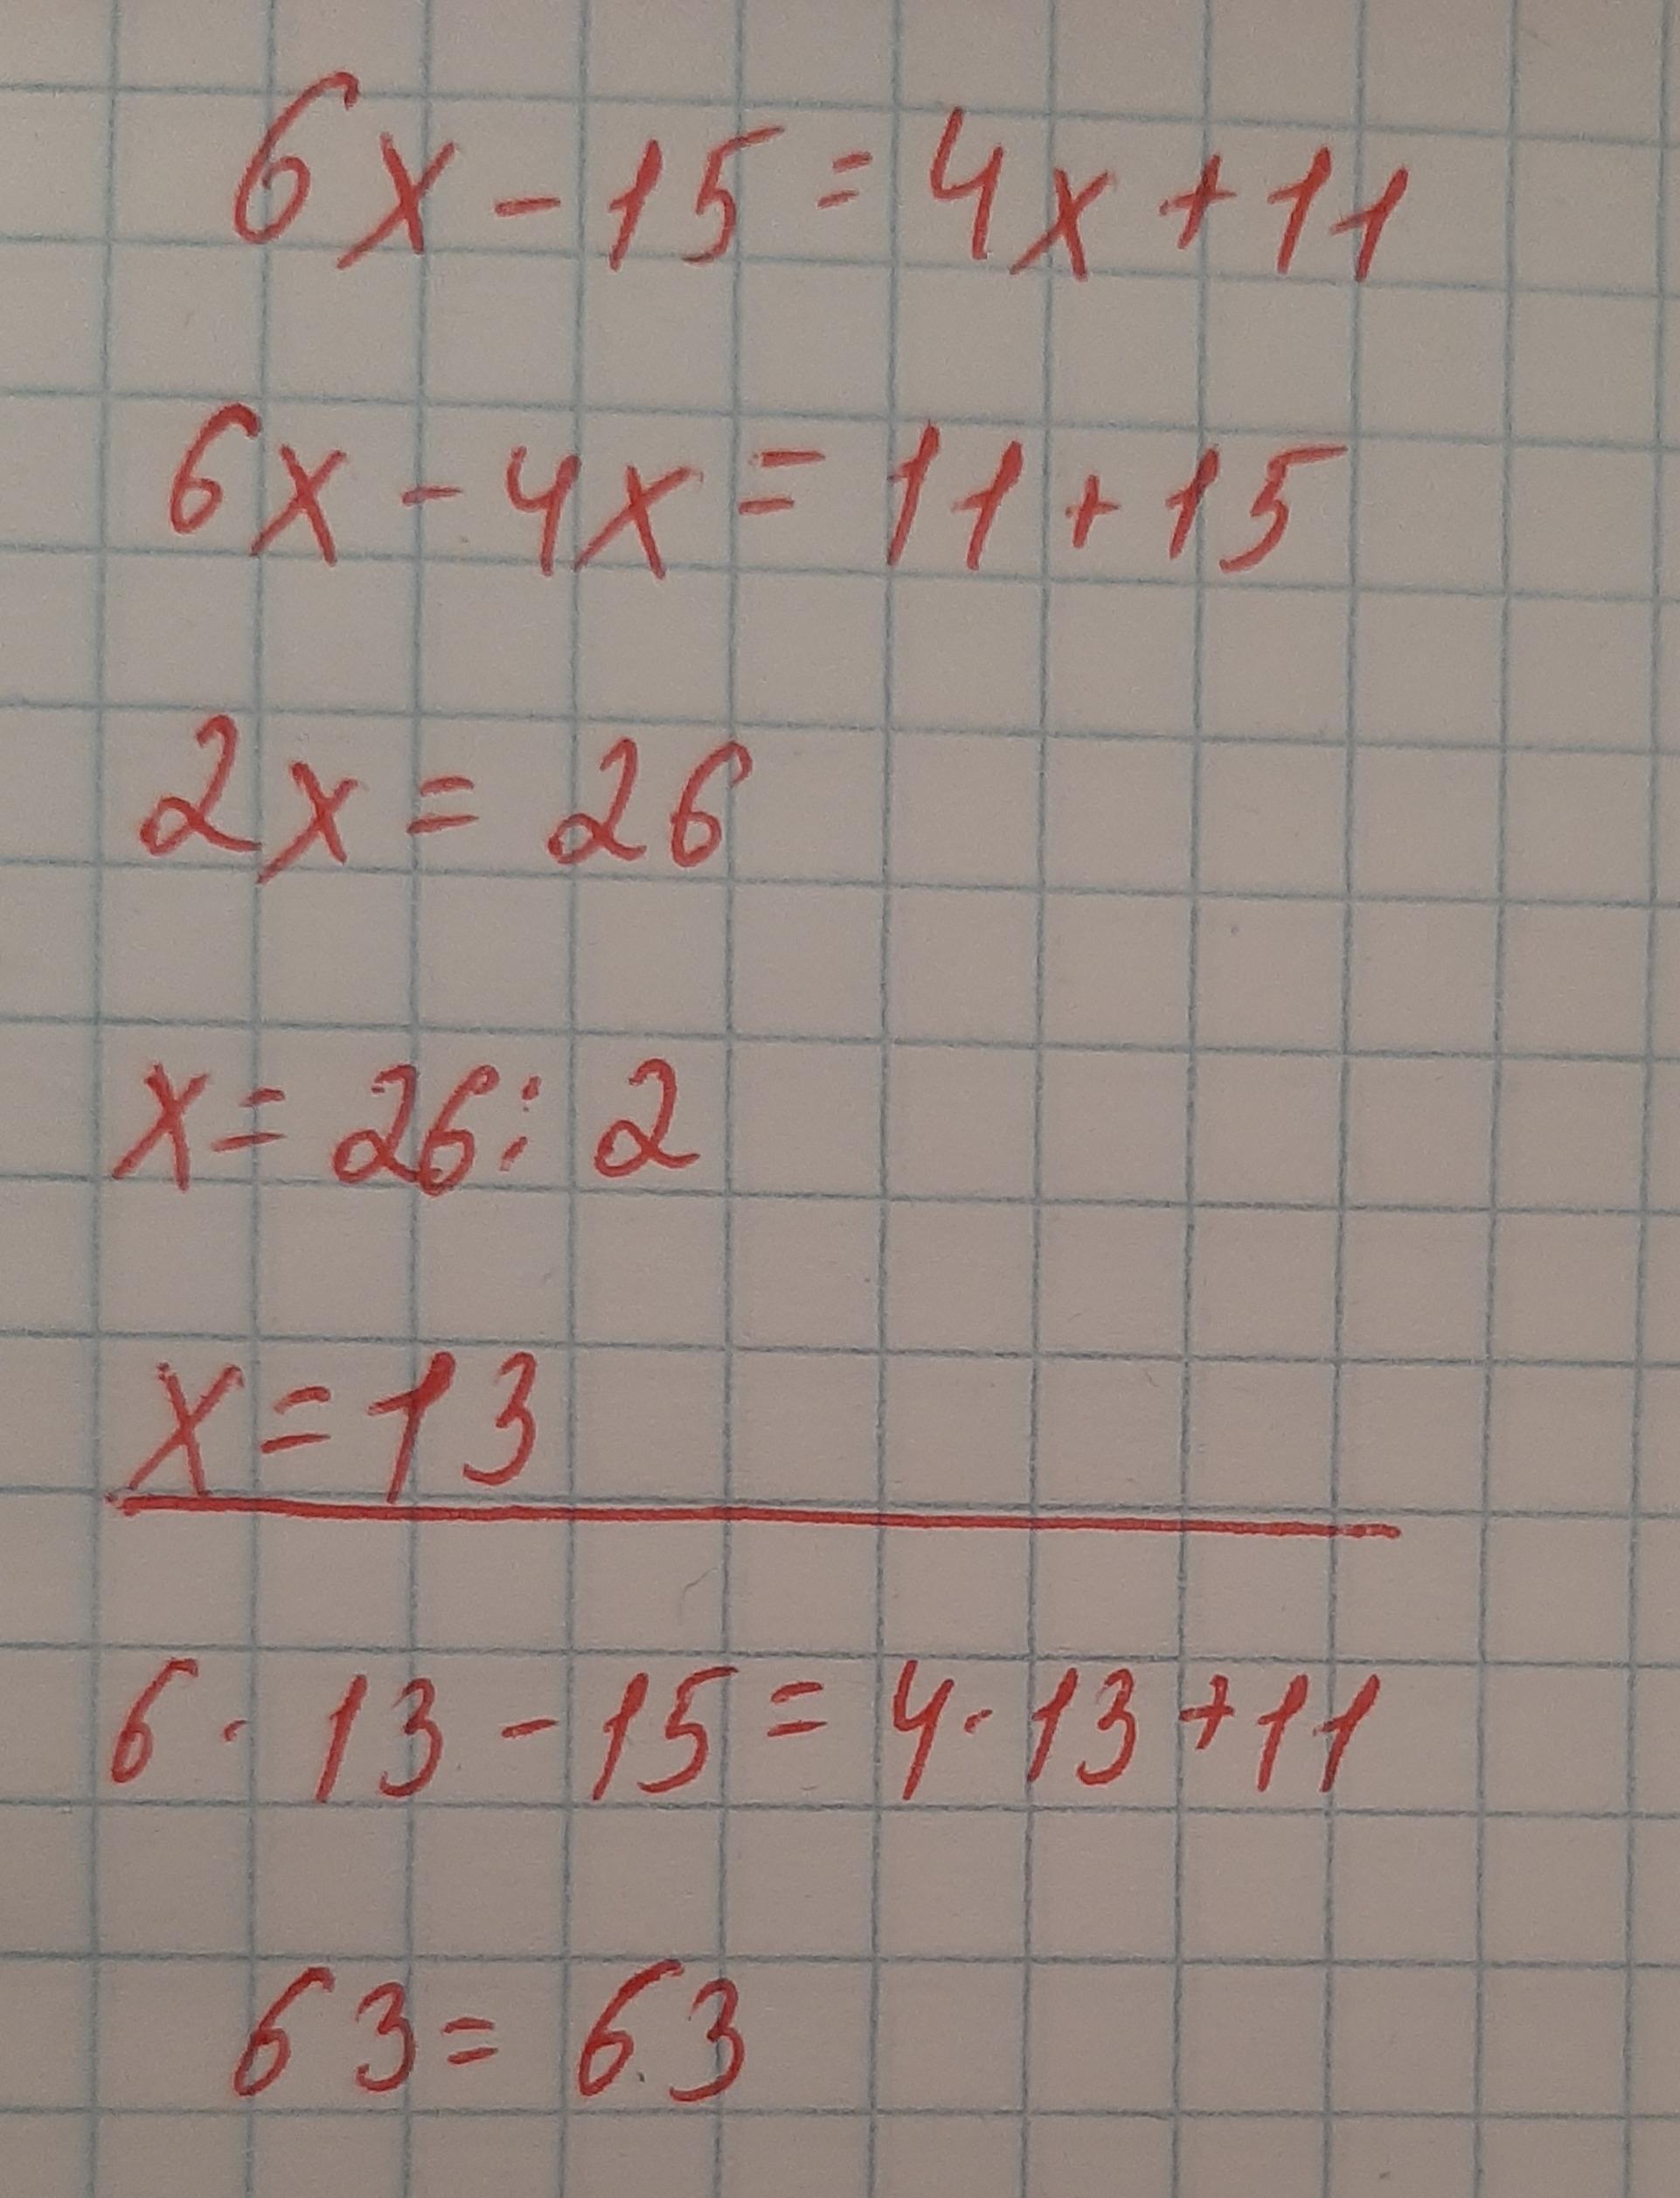 6x - 15 = 4x + 11
6x - 4x = 11 + 15
2x = 26
x = 26 : 2
x = 13
6 · 13 - 15 = 4 · 13 + 11
63 = 63